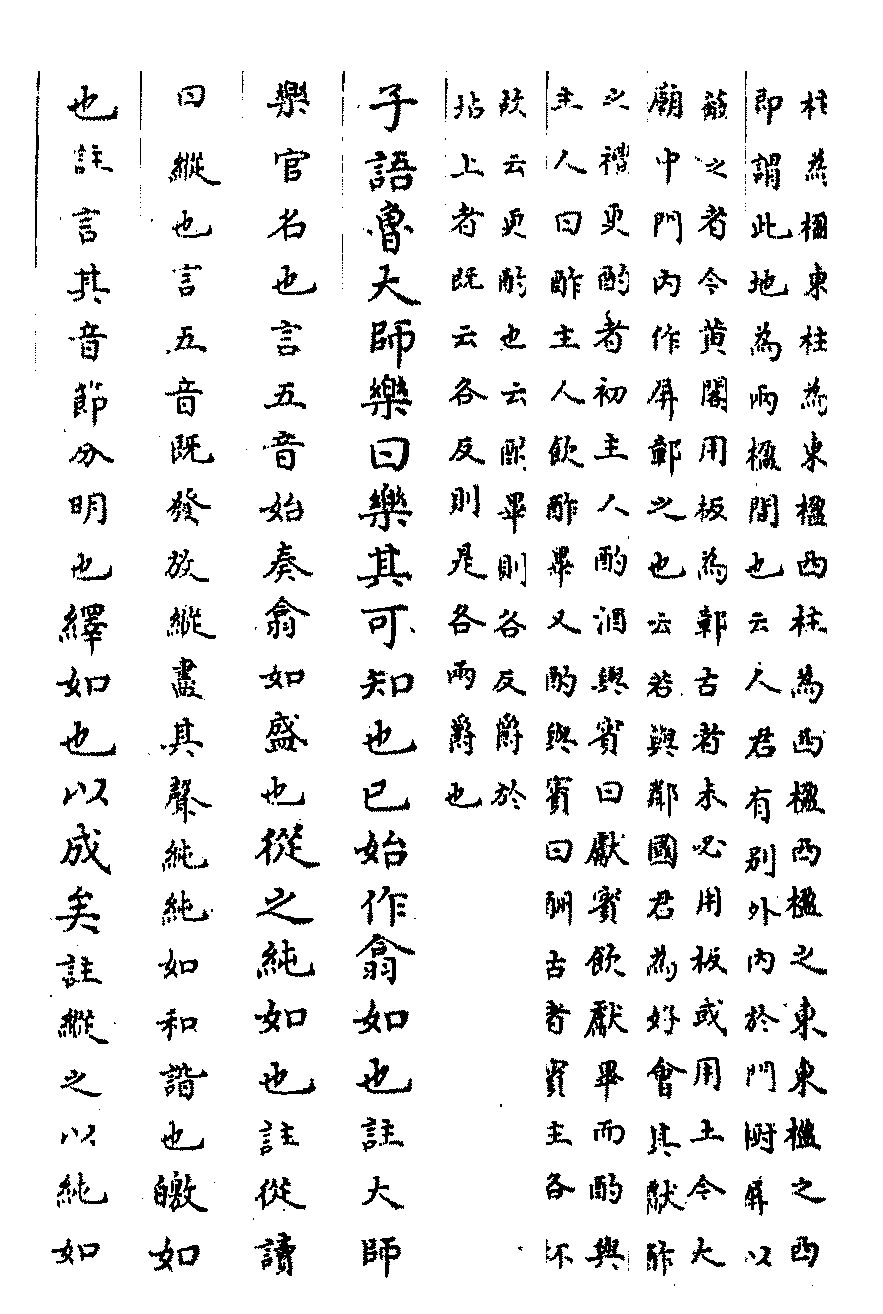 柱為楹東柱為東楹西柱為西楹西楹之東東楹之西
即謂此地為兩楹間也云人君有別外內於門樹屏以
蔽之者今黃閣用板為鄣古者未必用板或用土今大
廟中門內作屏鄣之也云若與鄰國君為好會其獻酢
之禮更酌者初主人酌酒與賓曰獻賓飲獻畢而酌與
主人曰酢主人飲酢畢又酌與賓曰酬古者賓主各杯
故云更酌也云酌畢則各反爵於
坫上者既云各反則是各兩爵也
子語魯大師樂曰樂其可知也已始作翕如也註大師
樂官名也言五音始奏翕如盛也從之純如也註從讀
曰縱也言五音既發放縱盡其聲純純如和諧也皦如
也註言其音節分明也繹如也以成矣註縱之以純如